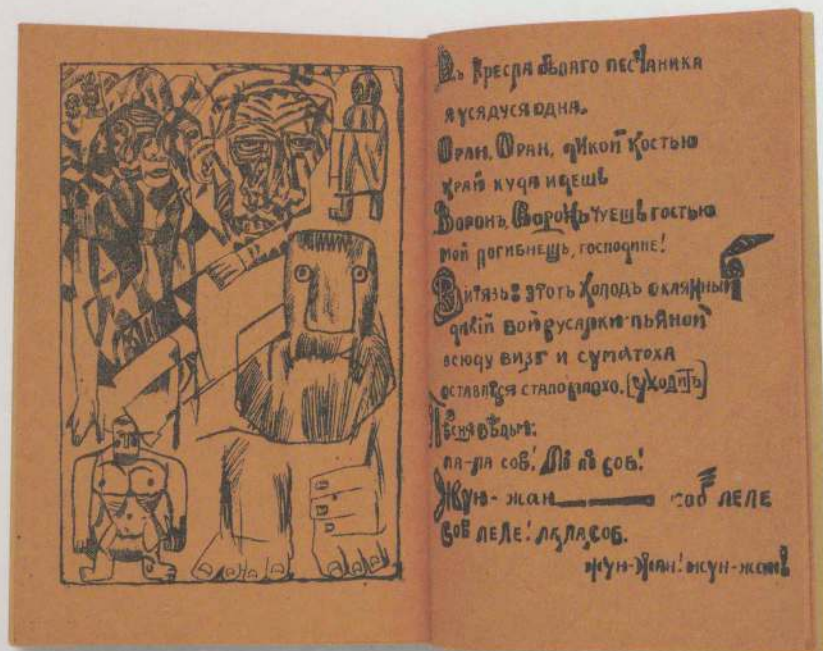 Въ кресла бѣлаго песчаника
я усядуся одна.
Оран, Оран, дикой костью
край куда идешь
Воронъ, Воронъ чуешь гостью
мой погибнешь, господине!
Витязь: этотъ холодъ окаянный
дикій вой русалки пьяной
всюду визг и суматоха
оставаться стало плохо. (уходитъ)
Пѣсня вѣдьмъ:
ла-ла соб! Ли ли соб!
Жун-жан соб леле
соб леле! ла, ла, соб.
жун-жан! жун-жан!